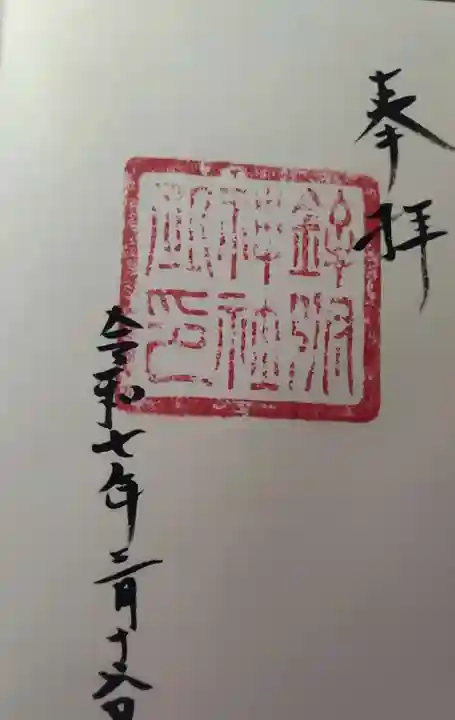 奉拝
神社
御印
令和七年二月十六日